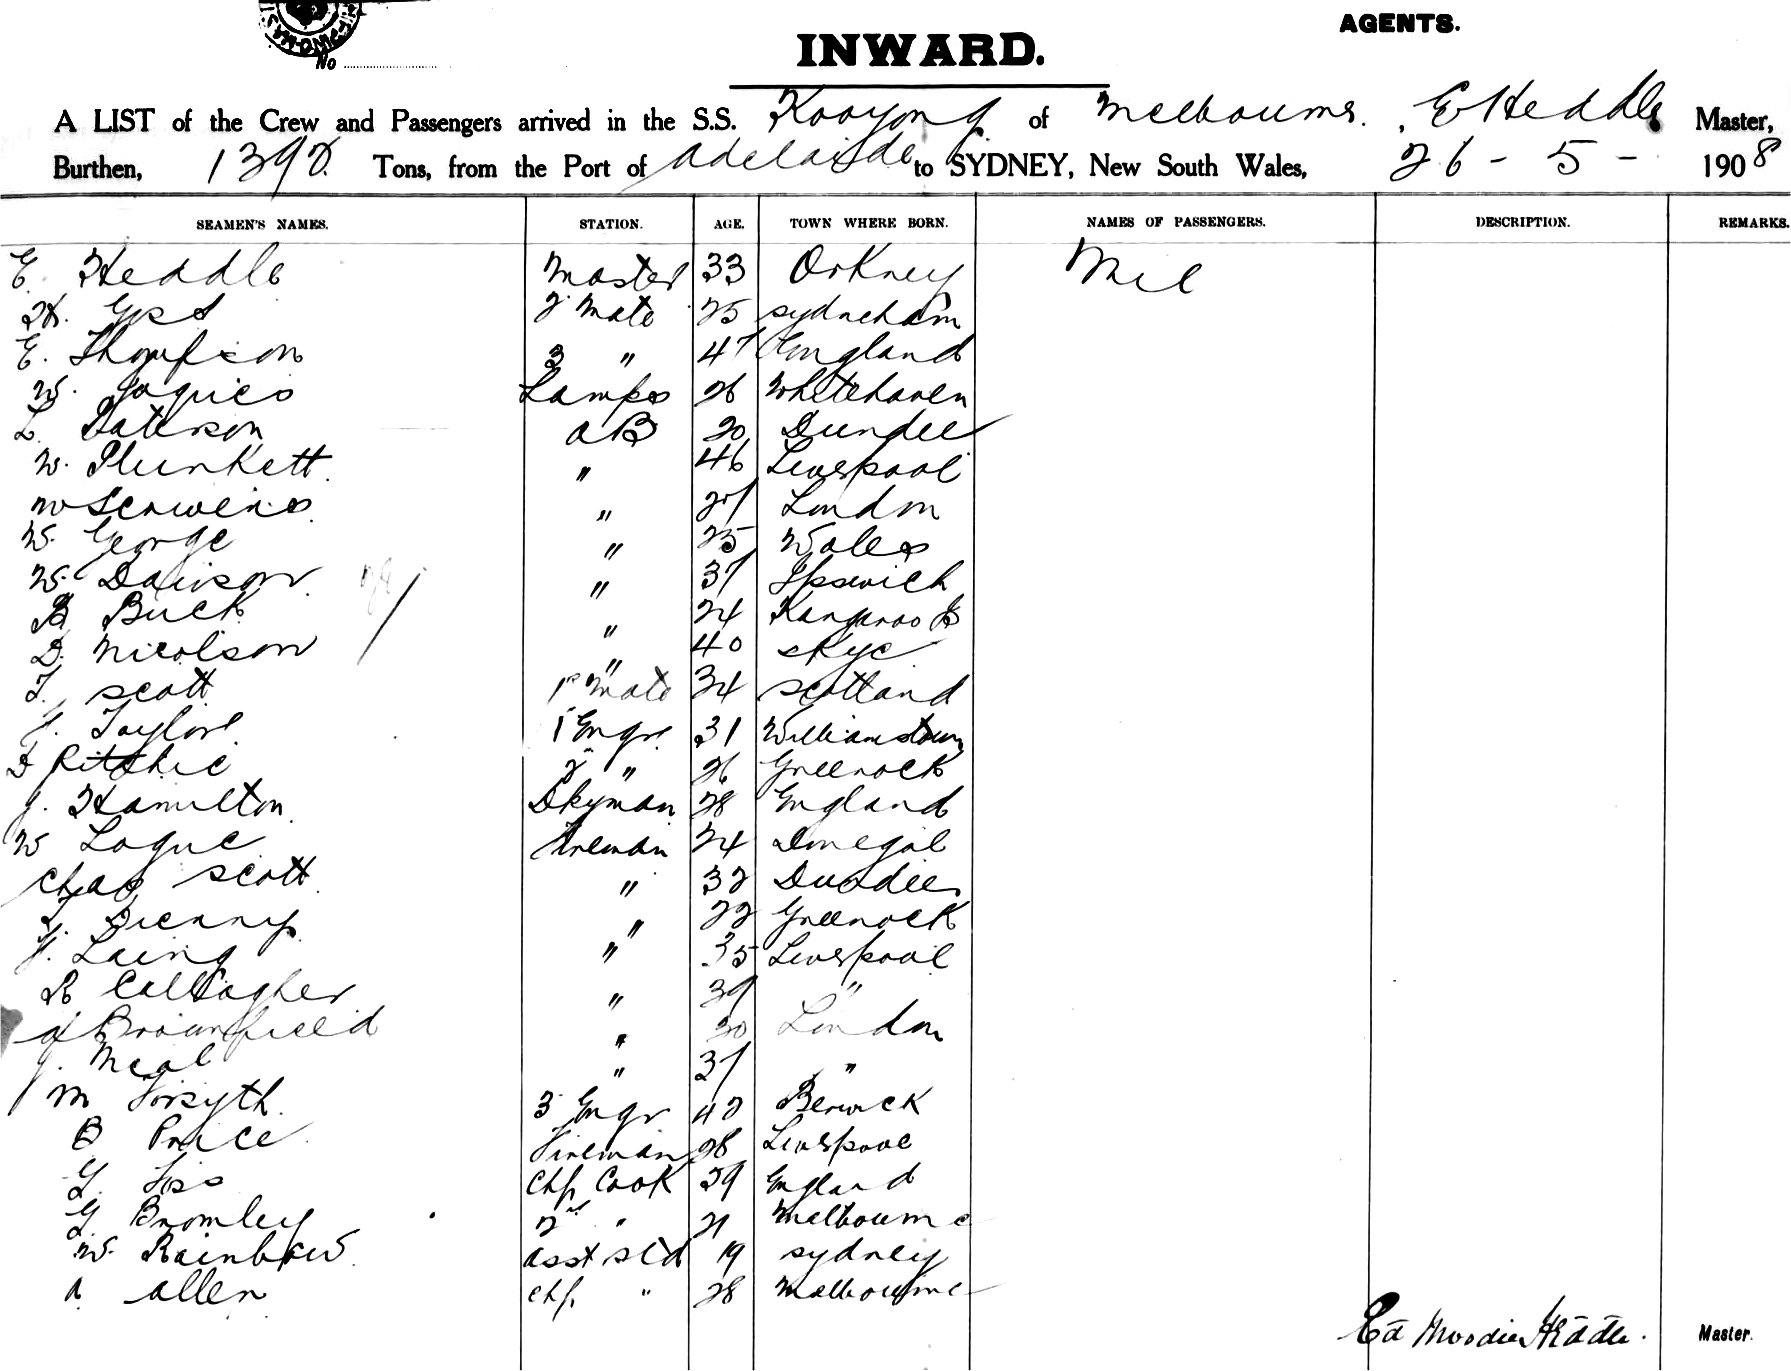 AGENTS.
No
INWARD.
A LIST of the Crew and Passengers arrived in the S.S. Kooyong of Melbourne, E Heddle Master,
Burthen, 1392 Tons, from the Port of Adelaide to SYDNEY, New South Wales, 26 - 5 - 1908
SEAMEN'S NAMES. STATION. AGE. TOWN WHERE BORN. NAMES OF PASSENGERS. DESCRIPTION. REMARKS.
E. Heddle Master 33 Orkney
H. 2 Mate 25 sydneham
E. Thompson 3 " 47 England
W. Jaques Lamps 26 Whitehaven
L. Paterson AB 20 Dundee
W. Plunkett " 46 Liverpool
W Scrivens " 27 London
W. George " 25 Wales
W. Davison " 37 Ipswich
B Buck " 24 Kangaroo
D. Nicolson " 40 skye
T. scott 1st Mate 34 scotland
J. Taylor 1 Engr 31 Williamstown
Ritchie 2 " 26 Greenock
J. Hamilton Dkyman 28 England
W Logue Fireman 24 Donegal
Chas scott " 32 Dundee
Dienny " 22 Greenock
J. Laing " 35 Liverpool
R Callagher " 39 "
Brownfield " 30 London
J. Neal " 37 "
M Forsyth 3 Engr 42 Berwick
B Price Fireman 28 Liverpool
G. Foss Chf Cook 29 England
G Bromley 2nd " 21 Melbourne
W. Rainbow asst std 19 sydney
A allen chf " 28 Melbourne
Ed Moodie Heddle. Master.